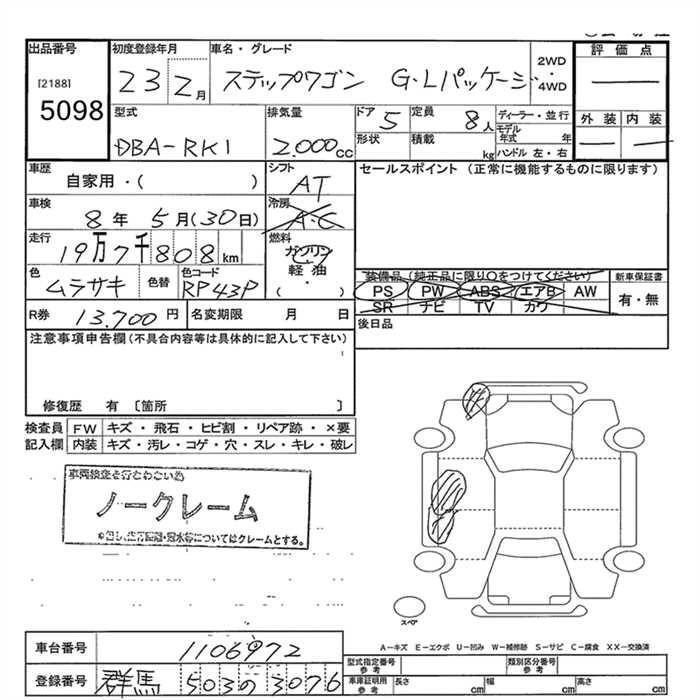 出品番号 初度登録年月 車名・グレード 評価点
[2188] 5098 23 2月 ステップワゴン G・Lパッケージ 2WD・4WD
型式 排気量 ドア 定員 ディーラー・並行 外装 内装
DBA-RK1 2.000cc 5 8人 モデル年式 年
形状 積載 kg ハンドル 左・右
車歴 シフト セールスポイント (正常に機能するものに限ります)
自家用・( ) AT
車検 冷房
8年 5月(30日) A・C
走行 燃料
19万7千808km ガソリン
色 色替 色コード 軽油 装備品 (純正品に限り○をつけてください) 新車保証書
ムラサキ RP43P ( ・ ) PS PW ABS エアB AW 有・無
SR ナビ TV カワ
R券 13.700円 名変期限 月 日 後日品
注意事項申告欄(不具合内容等は具体的に記入して下さい)
修復歴 有 〔箇所 〕
検査員記入欄 FW キズ・飛石・ヒビ割・リペア跡・×要
内装 キズ・汚レ・コゲ・穴・スレ・キレ・破レ
車両検査を行わない為
ノークレーム
※但し、走行距離・冠水等についてはクレームとする。
スペア
A-キズ E-エクボ U-凹み W-補修跡 S-サビ C-腐食 XX-交換済
車台番号 1106972
型式指定番号参考 類別区分番号参考
登録番号 群馬 503 の 3076
車庫証明用参考 長さ cm 幅 cm 高さ cm